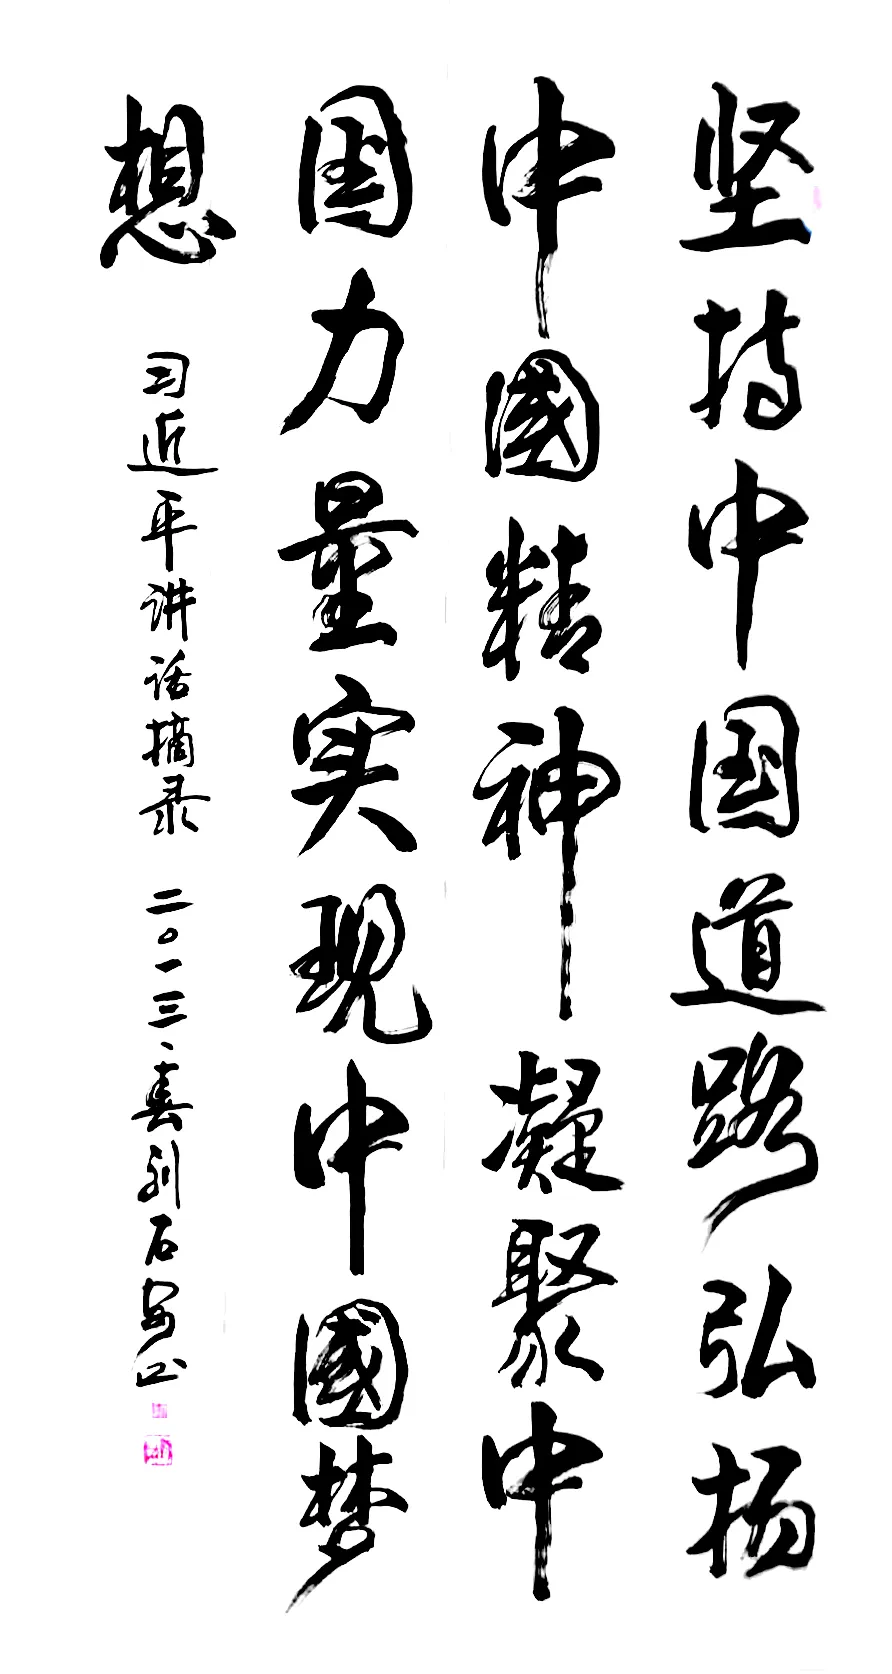 坚持中国道路弘扬
中國精神凝聚中
国力量实现中國梦
想
习近平讲话摘录 二〇一三、春刘石安书